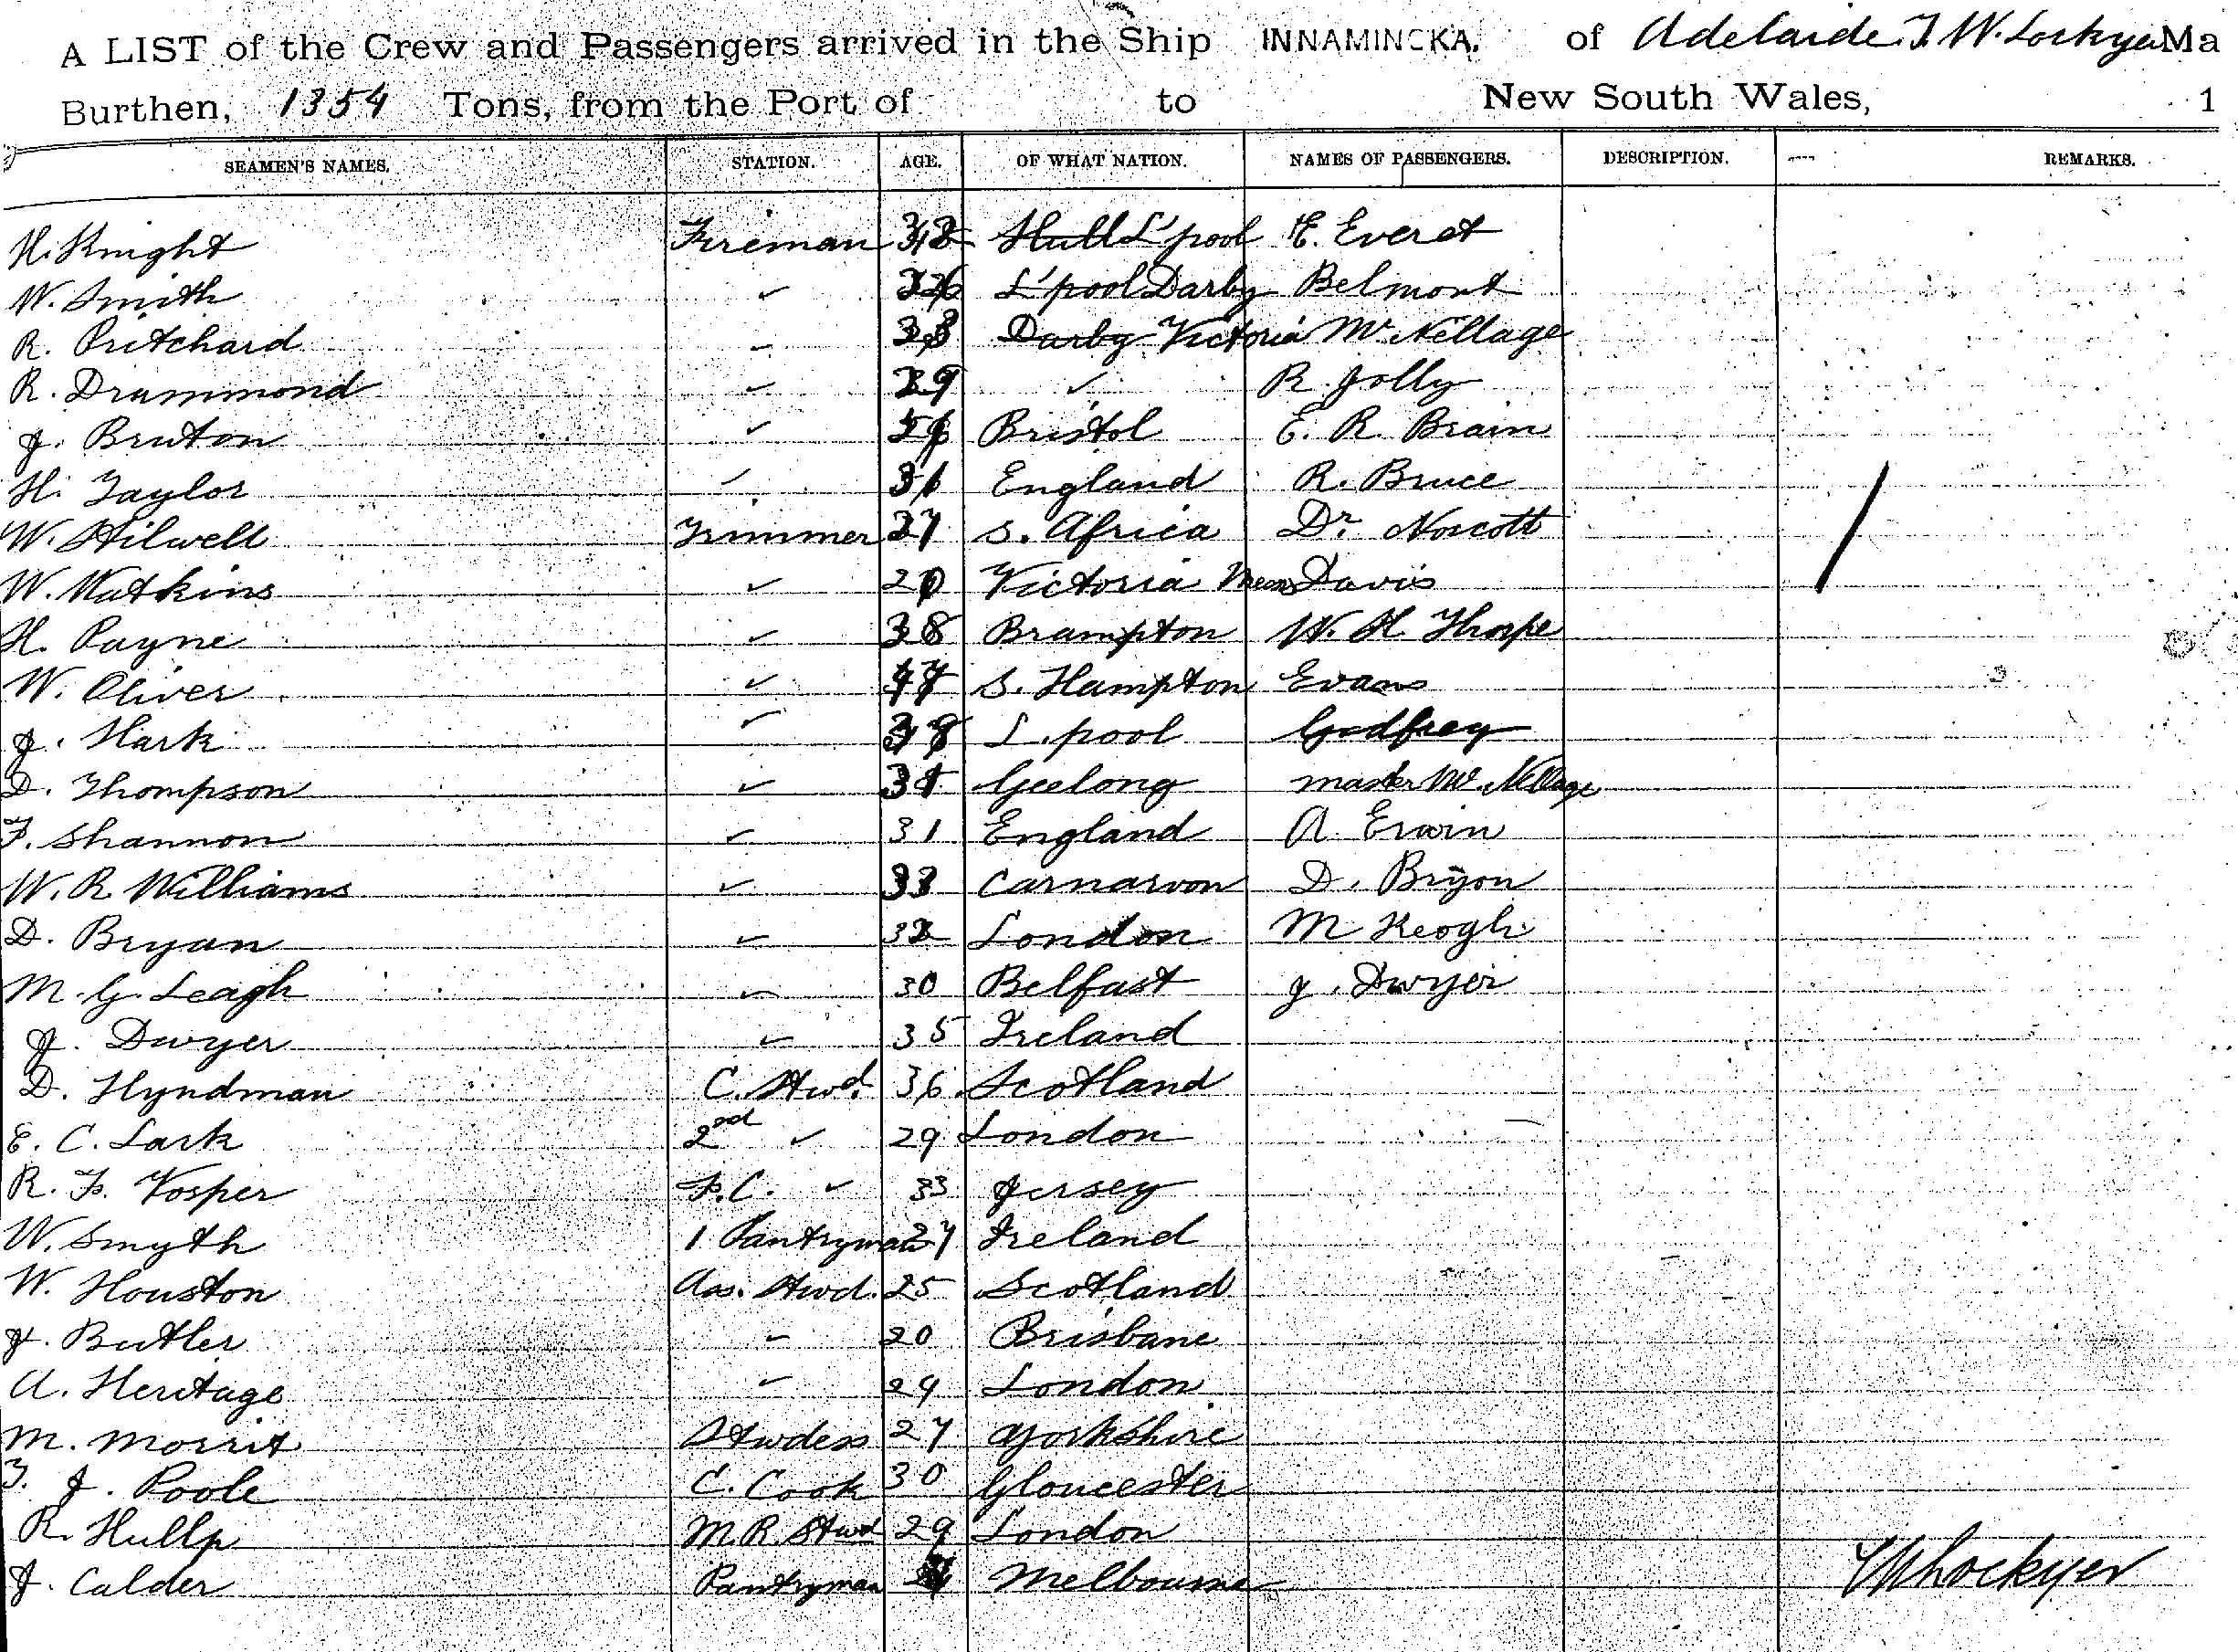 A LIST of the Crew and Passengers arrived in the Ship INNAMINCKA. of Adelaide. T. W. Lockyer Ma
Burthen, 1354 Tons, from the Port of to New South Wales, 1
SEAMEN'S NAMES. STATION. AGE. OF WHAT NATION. NAMES OF PASSENGERS. DESCRIPTION. REMARKS.
H. Knight Fireman Hull L'pool E. Everet
W. Smith ✓ L'pool Darby Belmont
R. Pritchard ✓ Darby Victoria Mc Nellage
R. Drummond ✓ 29 ✓ R. Jolly
J. Bruton ✓ Bristol E. R. Brain
H. Taylor ✓ England R. Bruce
W. Stilwell Trimmer 27 S. Africa Dr. Norcott
W. Watkins ✓ Victoria Davis
H. Payne ✓ 38 Brampton W. H. Thorpe
W. Oliver ✓ 47 S. Hampton Evans
J. Hark ✓ L. pool Godfrey
D. Thompson ✓ Geelong master Mc Nellage
F. Shannon ✓ 31 England A. Erwin
W. R. Williams ✓ 33 Carnarvon D. Bryon
D. Bryan ✓ 32 London M Keogh
M. G. Leagh ✓ 30 Belfast J. Dwyer
J. Dwyer ✓ 35 Ireland
D. Hyndman C. Stwd. 36 Scotland
E. C. Lark 2nd ✓ 29 London
R. F. Vosper F.C. ✓ 33 Jersey
W. Smyth 1 Pantryman 27 Ireland
W. Houston Ass. Stwd. 25 Scotland
J. Butler ✓ 20 Brisbane
A. Heritage ✓ 29 London
M. Morrit Stwdess 27 Yorkshire
T. J. Poole C. Cook 30 Gloucester
R. Hullp M.R. Stwd 29 London
J. Calder Pantryman Melbourne
TWLockyer